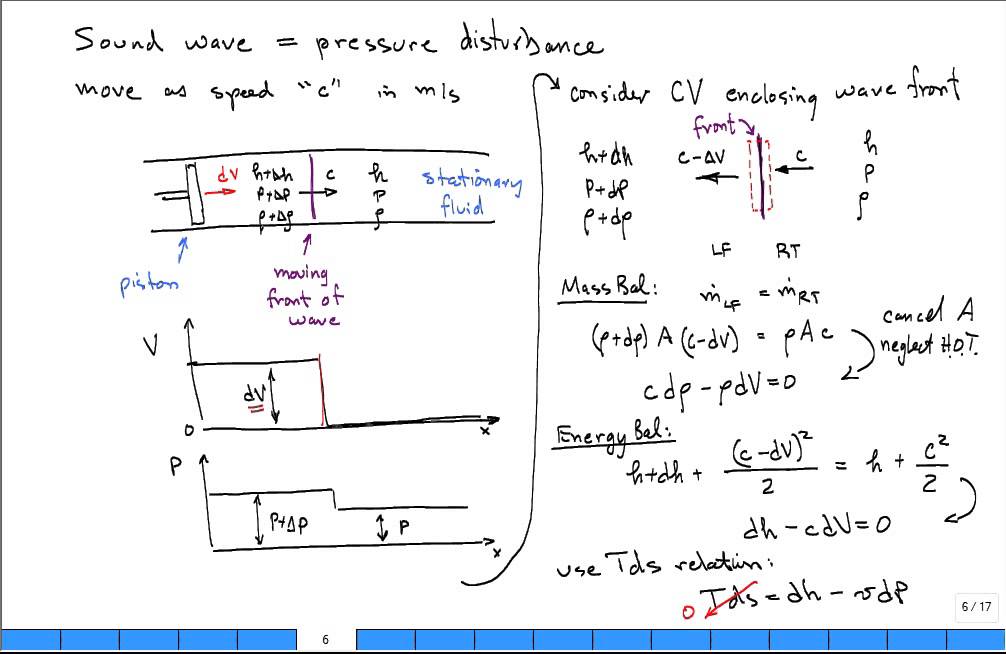 Sound wave = pressure disturbance
move as speed "c" in m/s
dV
h+Δh
P+ΔP
ρ+Δρ
c
h
P
ρ
stationary
fluid
piston
moving
front of
wave
V
dV
0
x
P
P+ΔP
P
x
consider CV enclosing wave front
front
h+dh
P+dP
ρ+dρ
c-ΔV
c
h
P
ρ
LF RT
Mass Bal: ṁLF = ṁRT
(ρ+dρ) A (c-dV) = ρAc
cancel A
neglect H.O.T.
cdρ - ρdV = 0
Energy Bal:
h+dh + (c-dV)²/2 = h + c²/2
dh - cdV = 0
use Tds relation:
0 Tds = dh - vdP
6 / 17
6